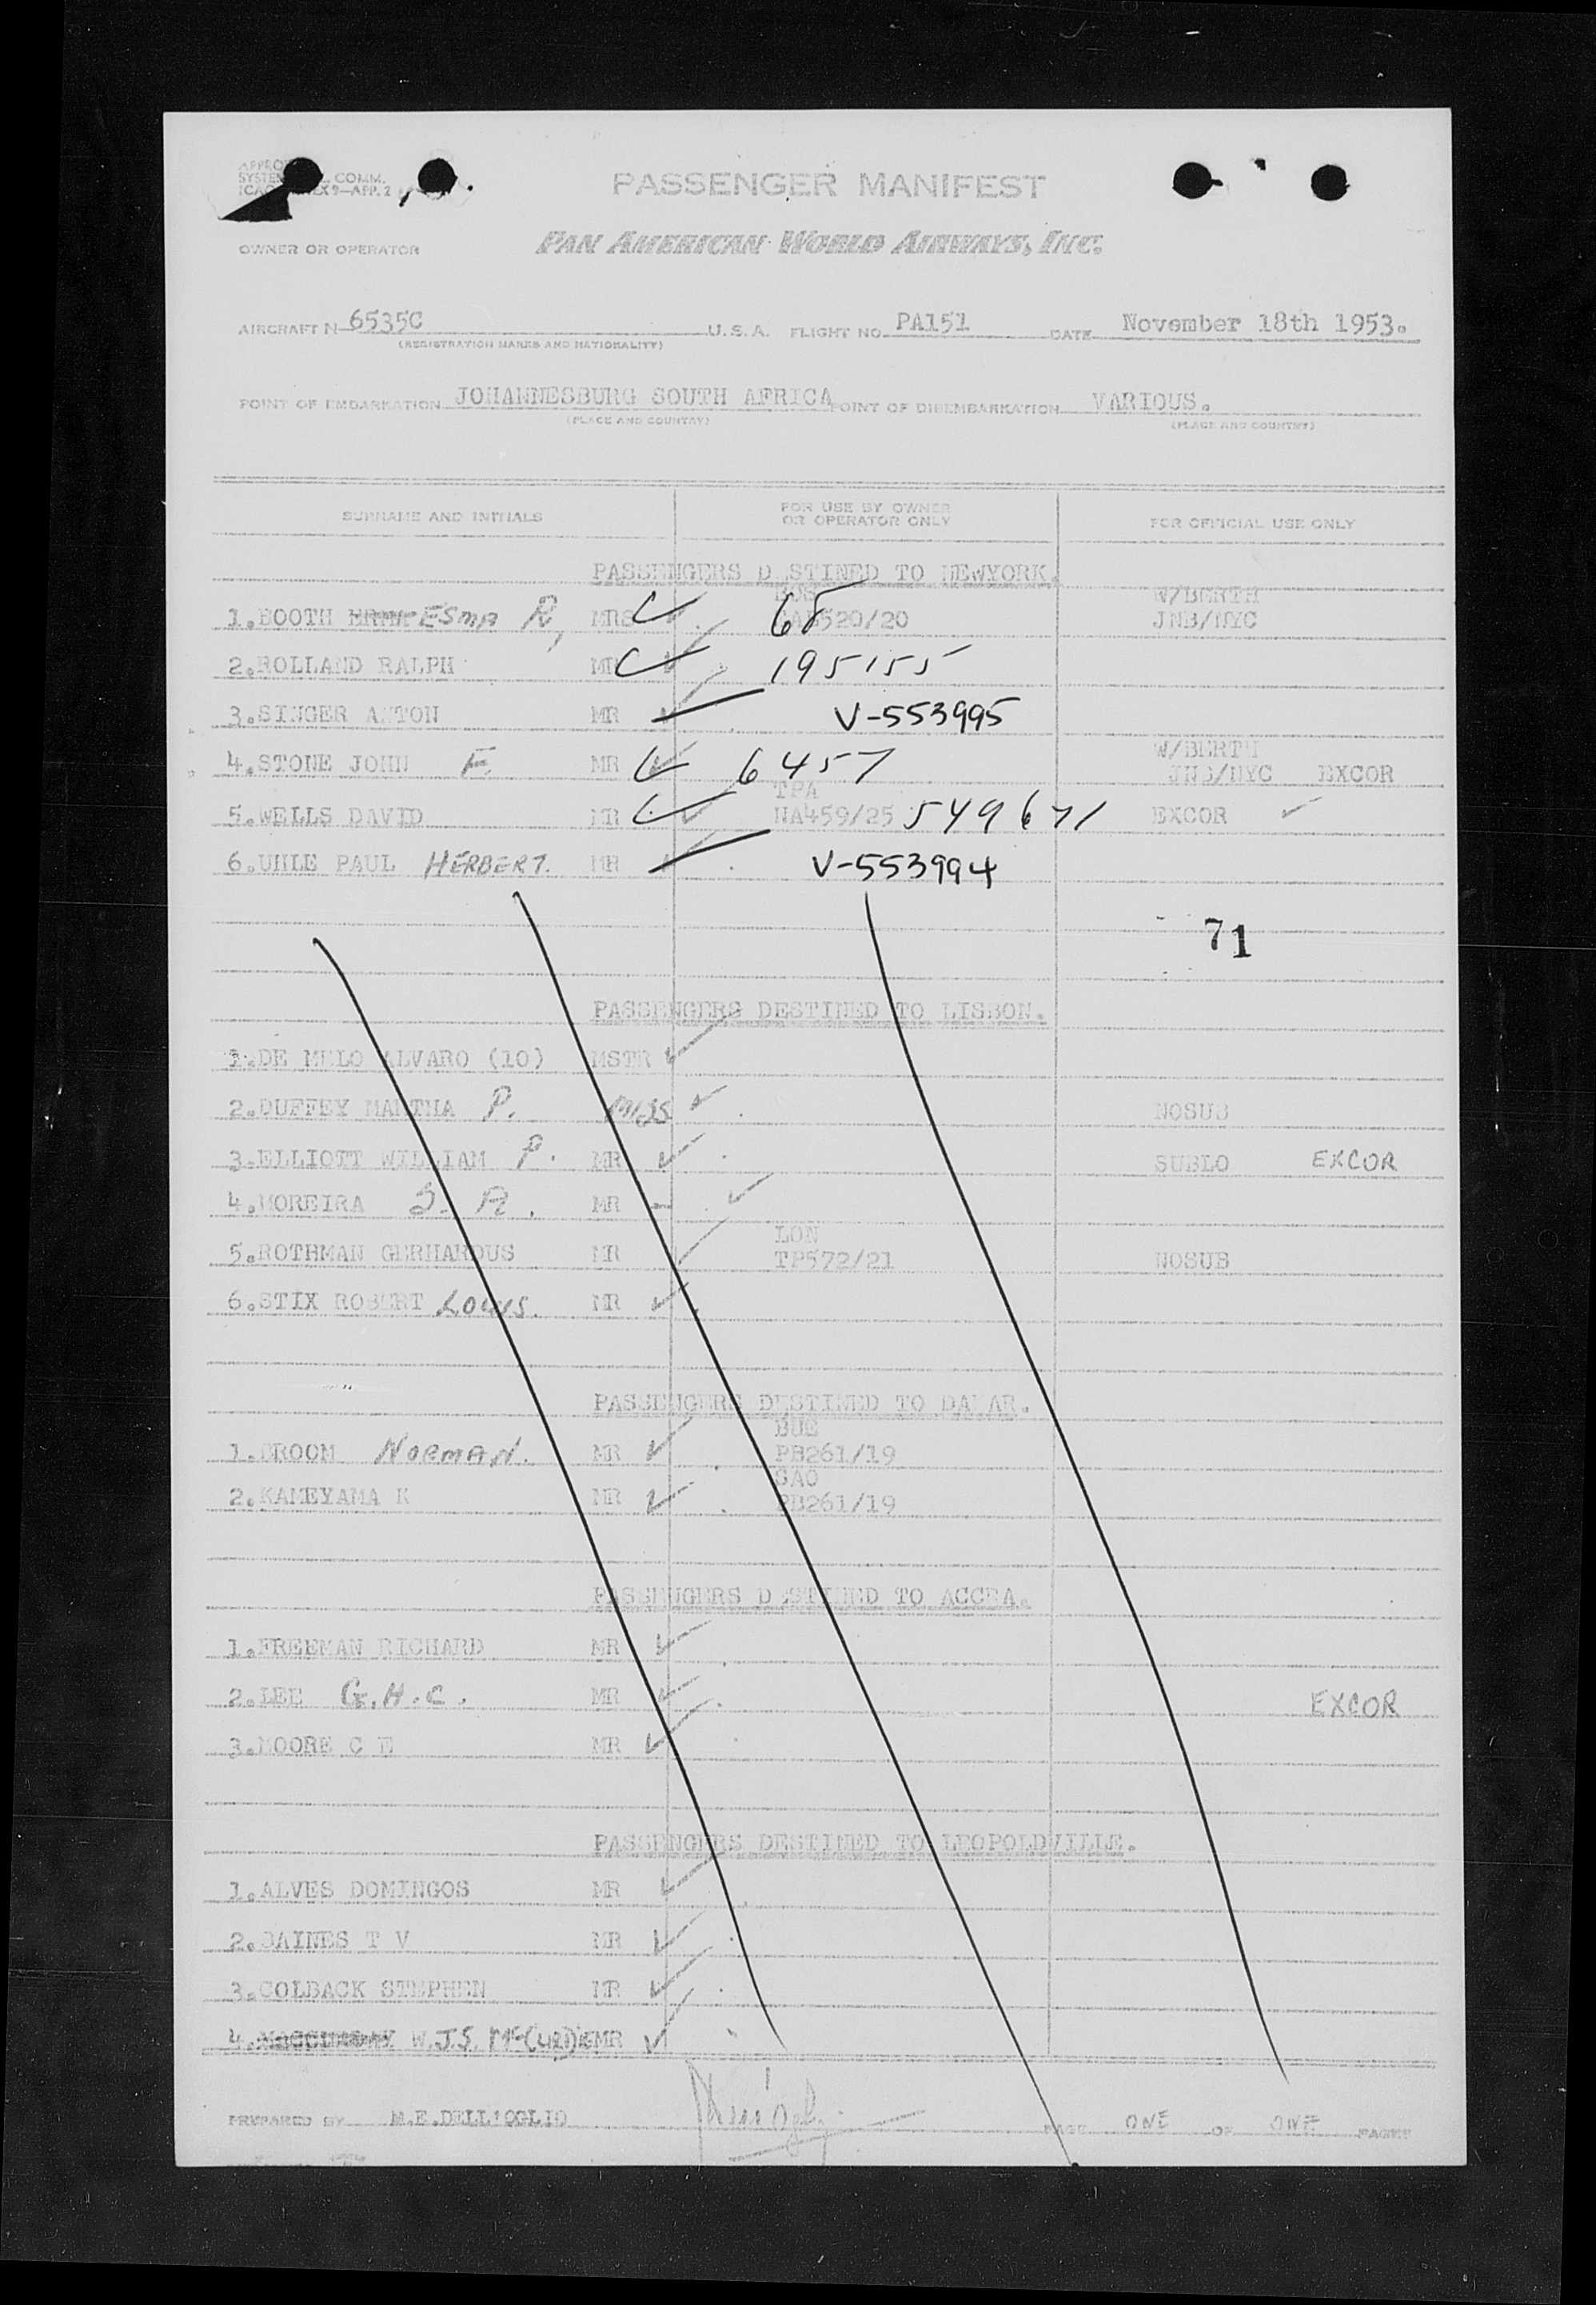 COMM.
PASSENGER MANIFEST
OWNER OR OPERATOR PAN AMERICAN WORLD AIRWAYS, INC.
AIRCRAFT N 6535C U.S.A. FLIGHT NO. PA151 DATE November 18th 1953.
(REGISTRATION MARKS AND NATIONALITY)
POINT OF EMBARKATION JOHANNESBURG SOUTH AFRICA POINT OF DISEMBARKATION VARIOUS.
(PLACE AND COUNTRY) (PLACE AND COUNTRY)
SURNAME AND INITIALS FOR USE BY OWNER OR OPERATOR ONLY FOR OFFICIAL USE ONLY
PASSENGERS D STINED TO NEWYORK.
W/BERTH
1.BOOTH ESMA R, MRS 520/20 JNB/NYC
2.ROLLAND RALPH MR 195155
3.SINGER ANTON MR V-553995
W/BERTH
4.STONE JOHN F. MR 6457 JNB/NYC EXCOR
TPA
5.WELLS DAVID MR NA459/25 549671 EXCOR
6.UHLE PAUL HERBERT. MR V-553994
71
PASSENGERS DESTINED TO LISBON.
1.DE MELO ALVARO (10) MSTR
2.DUFFEY MARTHA P. MISS NOSUB
3.ELLIOTT WILLIAM P. MR SUBLO EXCOR
4.MOREIRA MR
LON
5.ROTHMAN GERHARDUS MR TP572/21 NOSUB
6.STIX ROBERT LOUIS. MR
PASSENGERS DESTINED TO DAKAR.
BUE
1.BROOM NORMAN. MR PB261/19
SAO
2.KAMEYAMA K MR PB261/19
PASSENGERS DESTINED TO ACCRA.
1.FREEMAN RICHARD MR
2.LEE G.H.C. MR EXCOR
3.MOORE C E MR
PASSENGERS DESTINED TO LEOPOLDVILLE.
1.ALVES DOMINGOS MR
2.BAINES T V MR
3.COLBACK STEPHEN MR
4. W.J.S. MR
PREPARED BY M.E.DELL'OGLIO PAGE ONE OF ONE PAGES